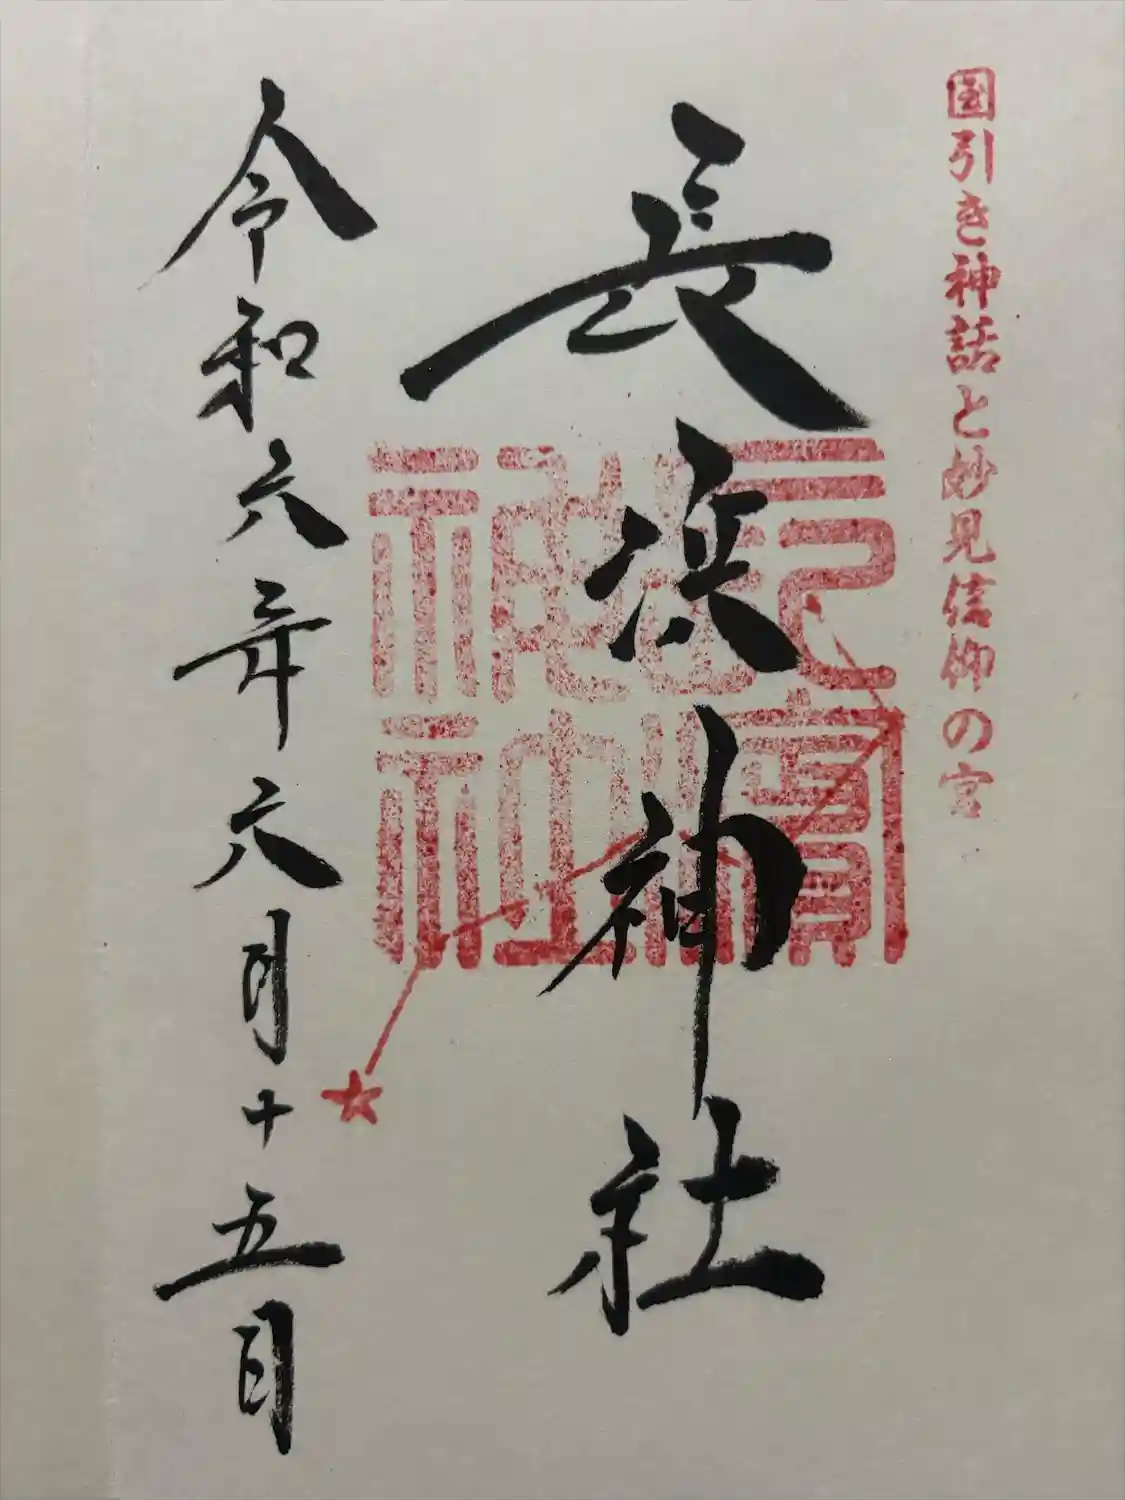 国引き神話と妙見信仰の宮
長浜神社
令和六年六月十五日